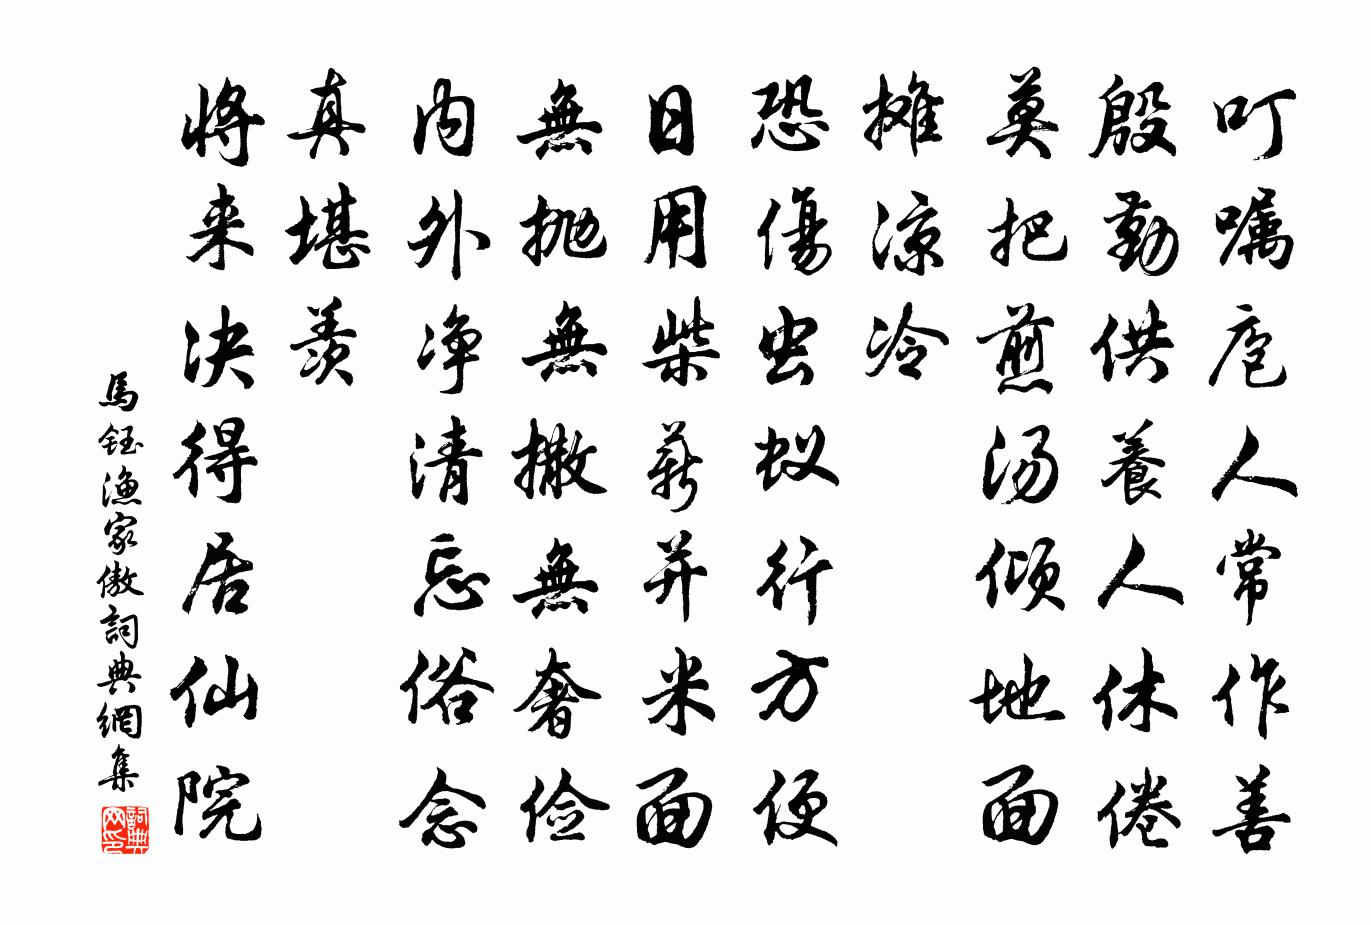 叮嘱庖人常作善
殷勤供養人休倦
莫把煎汤倾地面
摊涼冷
恐傷虫蚁行方便
日用柴薪并米面
無抛無撒無奢俭
内外净清忘俗念
真堪羨
将来决得居仙院
馬鈺漁家傲詞典網集
詞典网印